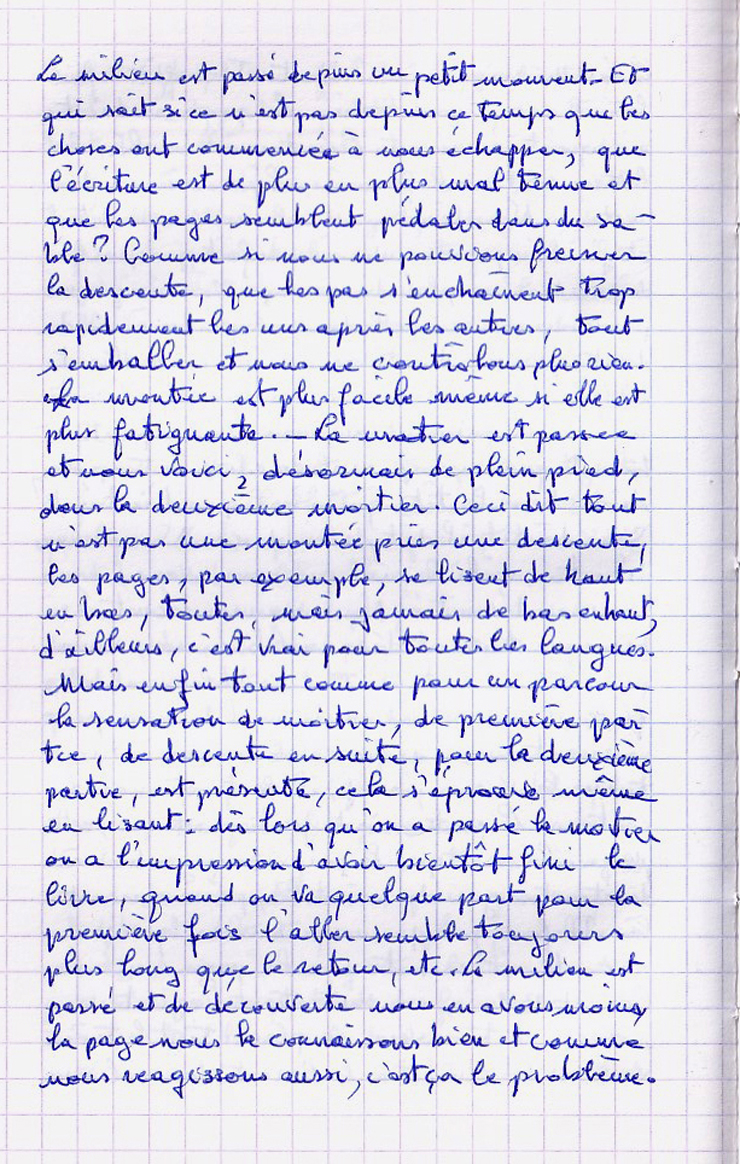 Le milieu est passé depuis un petit moment. Et
qui sait si ce n'est pas depuis ce temps que les
choses ont commencée à nous échapper, que
l'écriture est de plus en plus mal tenue et
que les pages semblent pédaler dans du sa-
ble ? Comme si nous ne pouvions freiner
la descente, que les pas s'enchaînent trop
rapidement les uns après les autres, tout
s'emballer et nous ne contrôlons plus rien.
La montée est plus facile même si elle est
plus fatiguante. — La moitier est passée
et nous voici, désormais de plein pied,
dans la deuxième moitier. Ceci dit tout
n'est pas une montée puis une descente,
les pages, par exemple, se lisent de haut
en bas, toutes, mais jamais de bas en haut,
d'ailleurs, c'est vrai pour toutes les langues.
Mais enfin tout comme pour un parcour
la sensation de moitier, de première par
tie, de descente en suite, pour la deuxième
partie, est présente, cela s'éprouve même
en lisant : dès lors qu'on a passé la motier
on a l'impression d'avoir bientôt fini le
livre, quand on va quelque part pour la
première fois l'aller semble toujours
plus long que le retour, etc. Le milieu est
passé et de découverte nous en avons moins,
la page nous la connaissons bien et comme
nous reagissons aussi, c'est ça le problème.